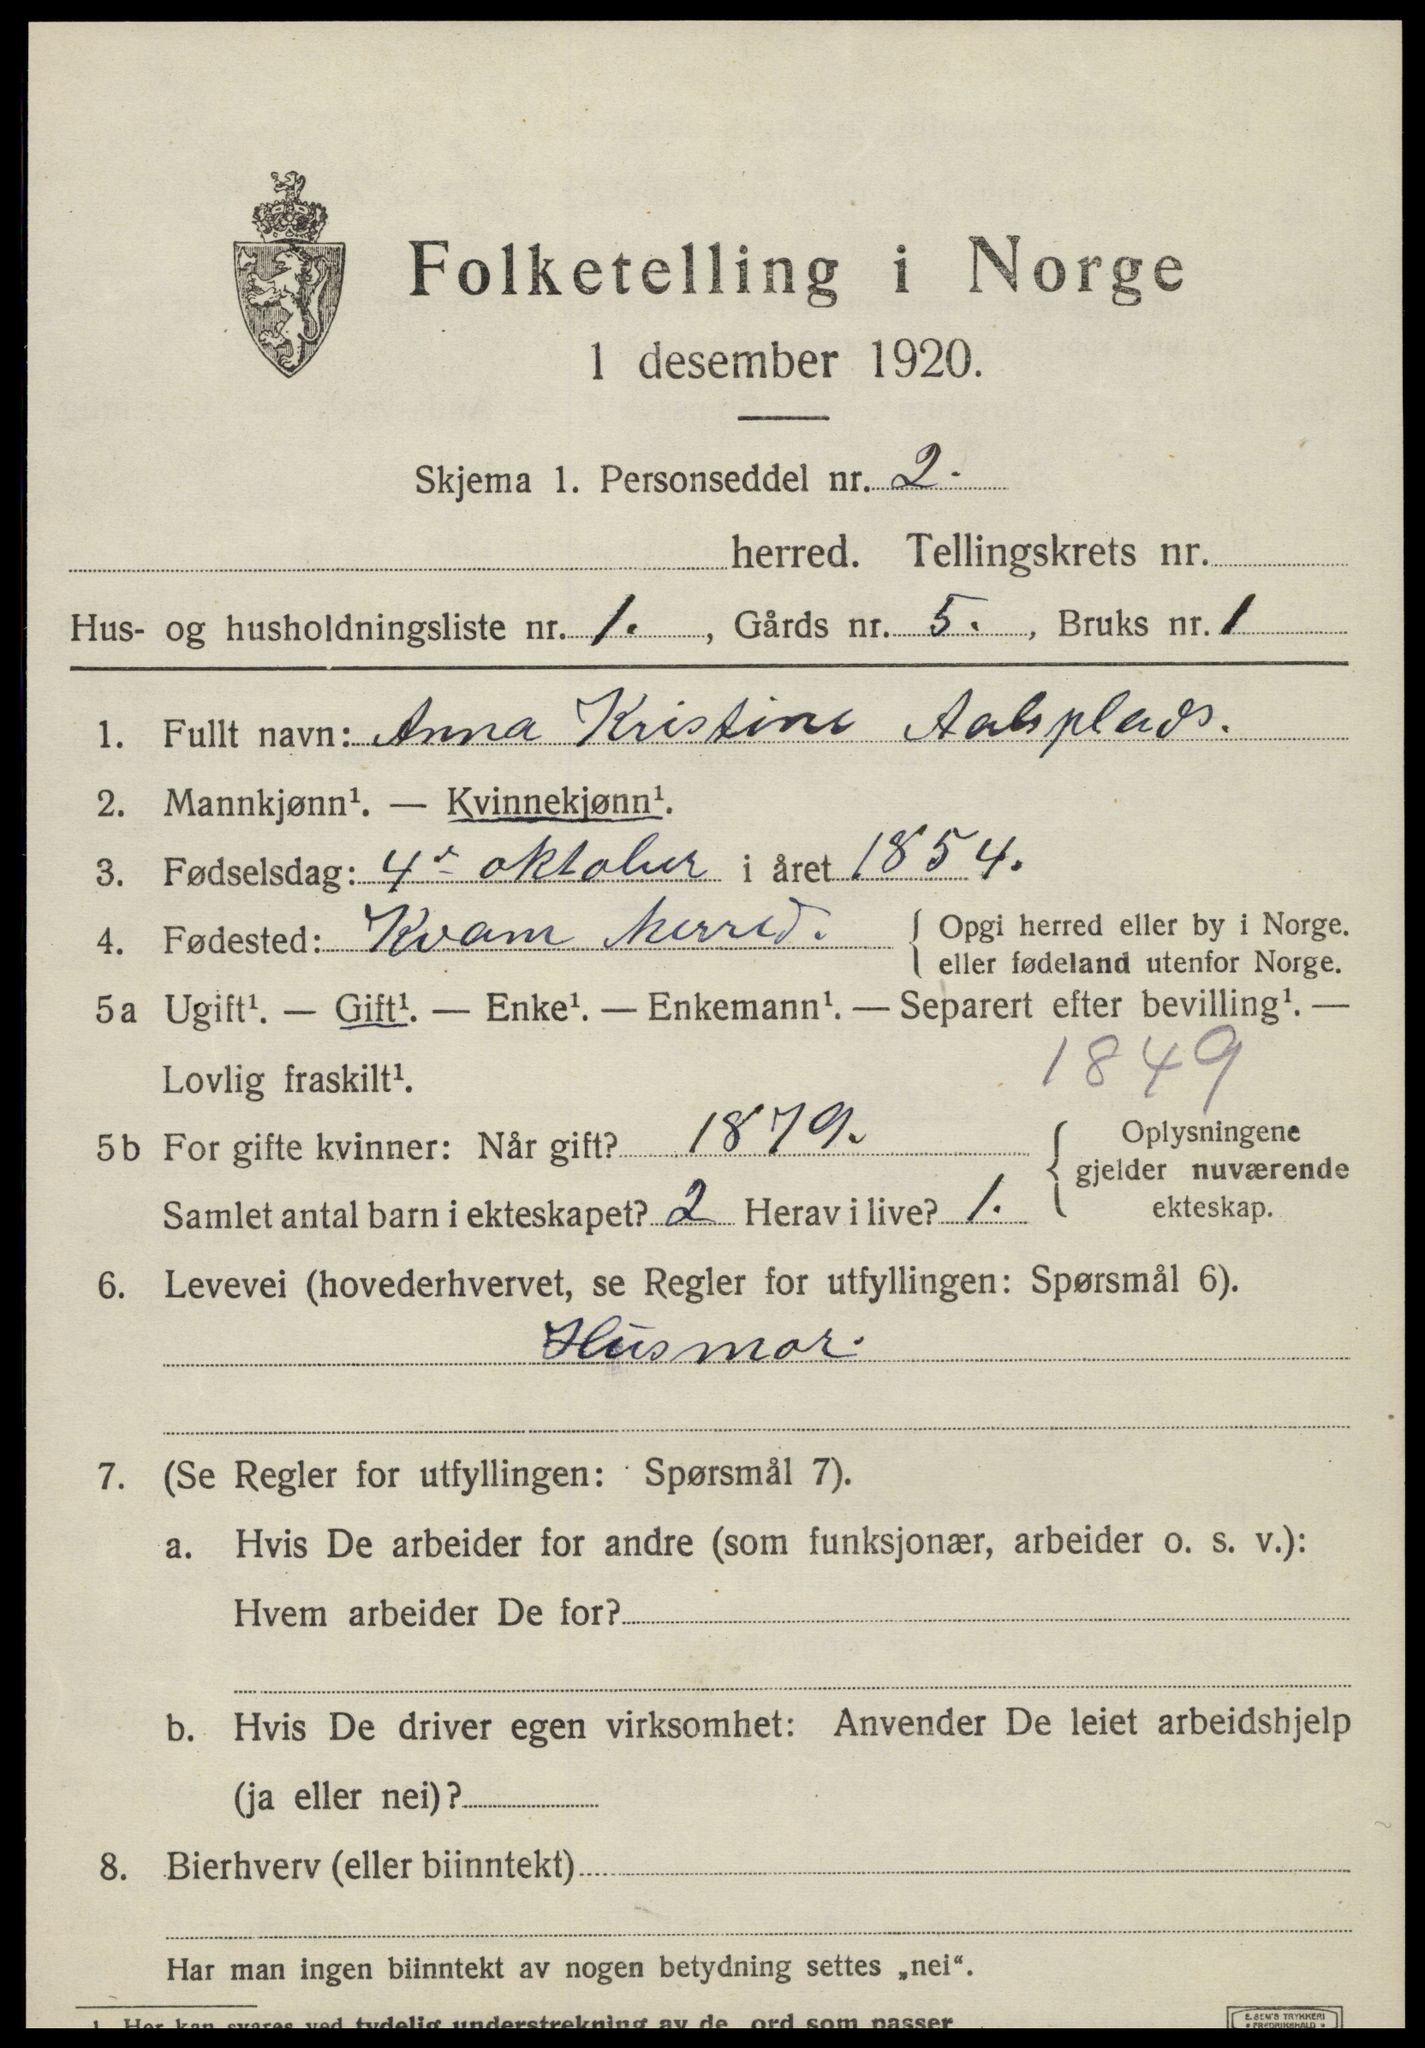 Folketelling i Norge
1 desember 1920.
Skjema 1. Personseddel nr. 2.
herred. Tellingskrets nr.
Hus- og husholdningsliste nr. 1., Gårds nr. 5., Bruks nr. 1
1. Fullt navn: Anna Kristine
2. Mannkjønn¹. — Kvinnekjønn¹.
3. Fødselsdag: 4de oktober i året 1854.
4. Fødested: Kvam herred. { Opgi herred eller by i Norge.
eller fødeland utenfor Norge.
5a Ugift¹. — Gift¹. — Enke¹. — Enkemann¹. — Separert efter bevilling¹. —
Lovlig fraskilt¹.
1849
5b For gifte kvinner: Når gift? 1879.
Samlet antal barn i ekteskapet? 2 Herav i live? 1.
{ Oplysningene
gjelder nuværende
ekteskap.
6. Levevei (hovederhvervet, se Regler for utfyllingen: Spørsmål 6).
Husmor.
7. (Se Regler for utfyllingen: Spørsmål 7).
a. Hvis De arbeider for andre (som funksjonær, arbeider o. s. v.):
Hvem arbeider De for?
b. Hvis De driver egen virksomhet: Anvender De leiet arbeidshjelp
(ja eller nei)?
8. Bierhverv (eller biinntekt)
Har man ingen biinntekt av nogen betydning settes „nei“.
1 Her kan svares ved tydelig understrekning av de ord som passer
E. SEM'S TRYKKERI
FREDRIKSHALD